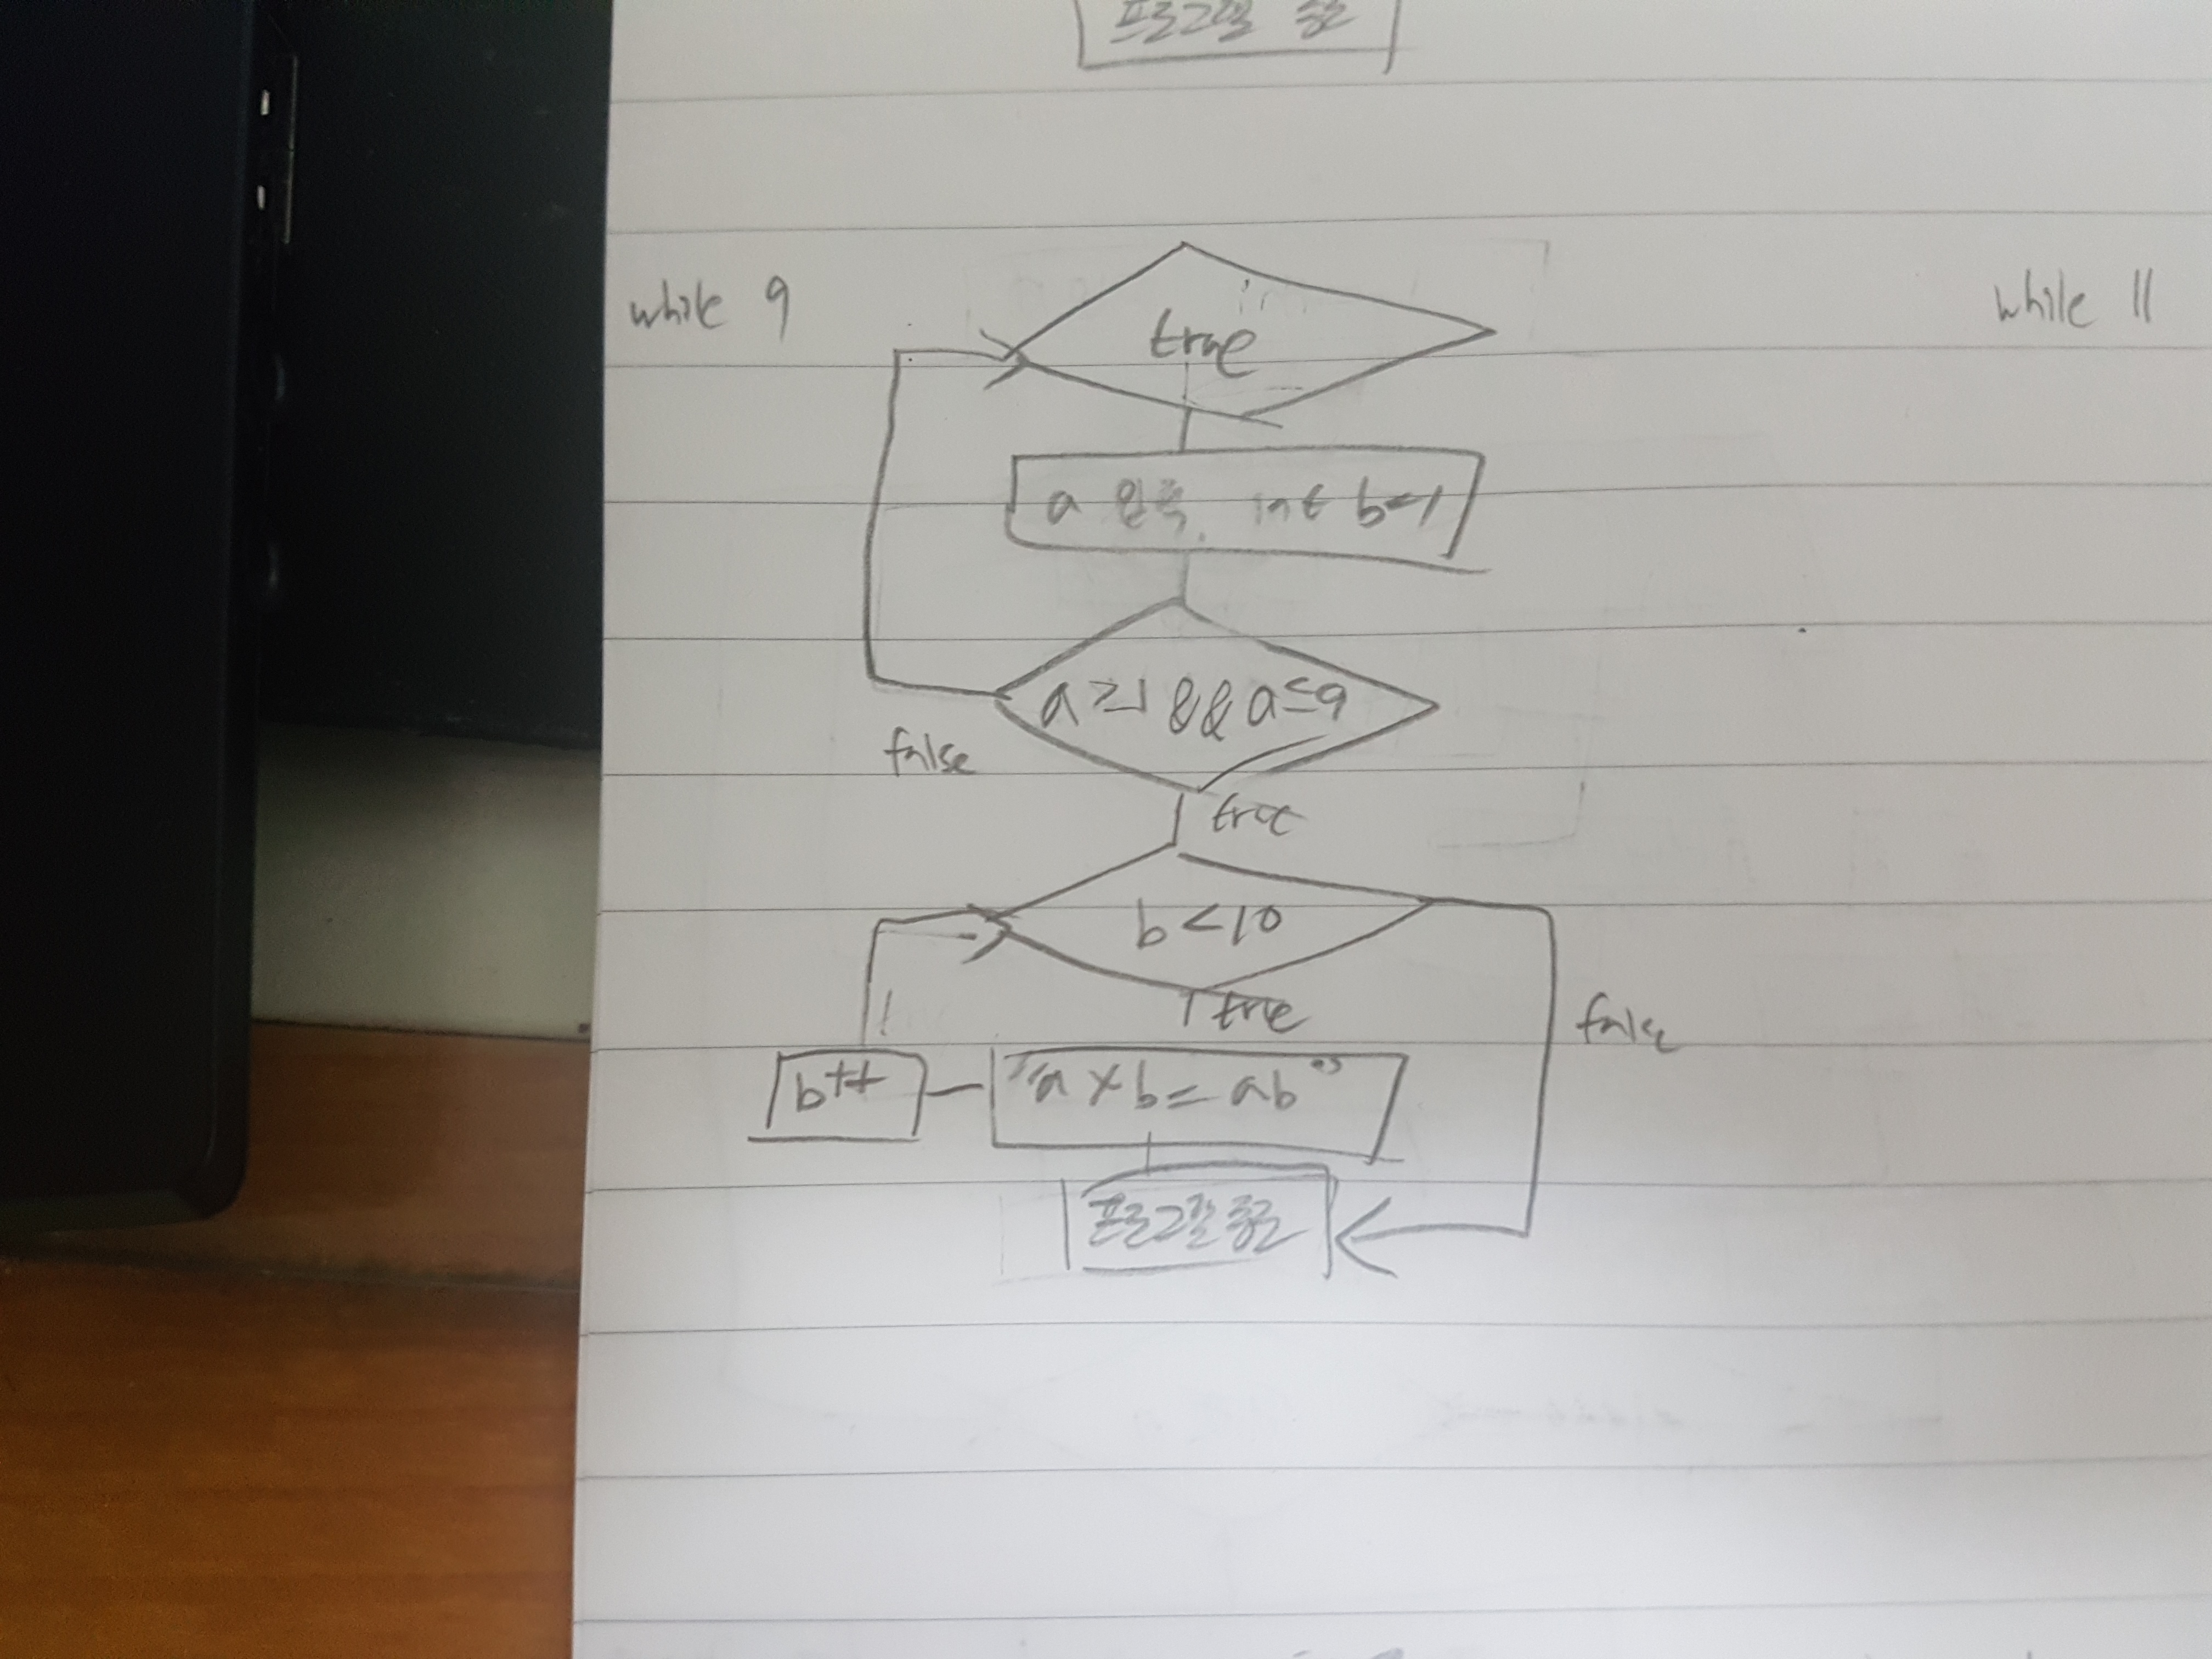 프로그램 종료
while 9
while 11
true
a 입력, int b=1
a ≥1 && a≤9
false
true
b<10
true
false
b++
"a x b = ab"
프로그램 종료